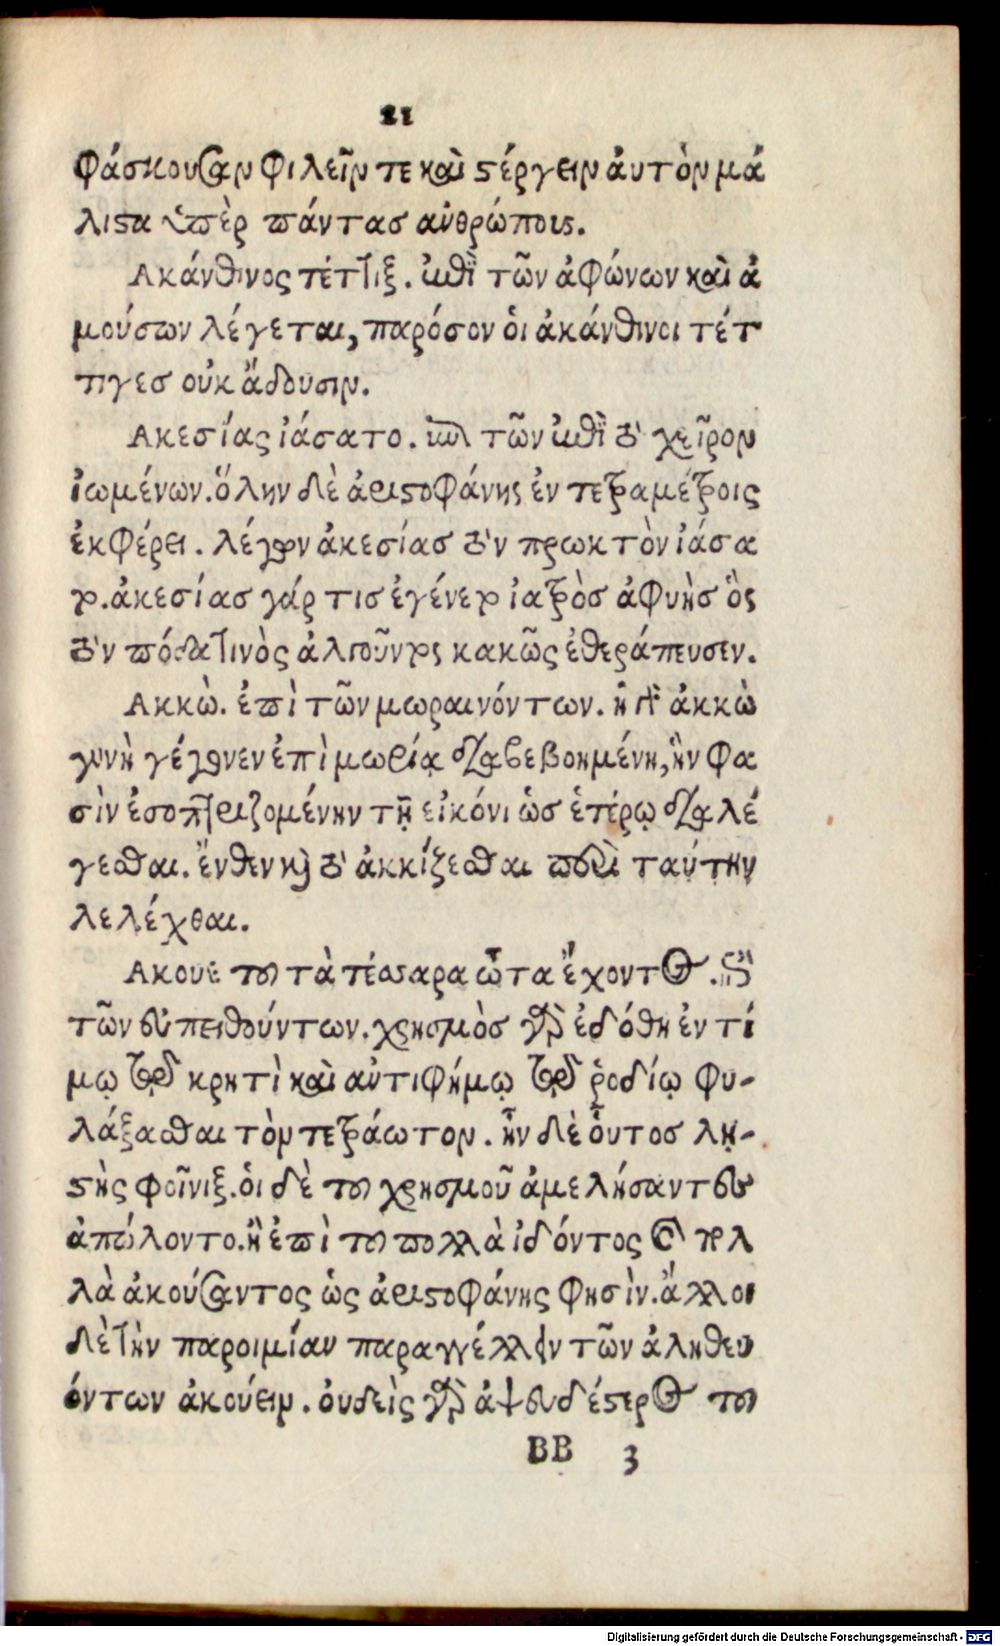 21
φάσκουσαν φιλεῖν τε καὶ στέργειν ἀυτὸν μά
λιστα ὑπὲρ πάντασ ανθρώπους.
Ακάνθινος τέττιξ. ἐπὶ τῶν ἀφώνων καὶ ἀ
μούσων λέγεται, παρόσον ὁι ἀκάνθινοι τέτ
τιγεσ οὐκ ἄδουσιν.
Ακεσίας ἰάσατο. ἐπὶ τῶν ἐπὶ τὸ χεῖρον
ἰωμένων. ὅλην δὲ ἀριστοφάνης ἐν τετραμέτροις
ἐκφέρει. λέγων ἀκεσίασ τὸν πρωκτὸν ἰάσα
το. ἀκεσίασ γάρ τισ ἐγένετο ἰατρὸσ ἀφυὴσ ὃς
τὸν πόδα τινὸς ἀλγοῦντος κακῶς ἐθεράπευσεν.
Ακκὼ. ἐπὶ τῶν μωραινόντων. ἡ γὰρ ἀκκὼ
γυνὴ γέγονεν ἐπὶ μωρίᾳ διαβεβοημένη, ἣν φα
σὶν ἐσοπτριζομένην τῇ εἰκόνι ὡσ ἑτέρῳ διαλέ
γεσθαι. ἔνθεν καὶ τὸ ἀκκίζεσθαι παρὰ ταύτην
λελέχθαι.
Ακουε του τὰ τέσσαρα ὦτα ἔχοντος. ἐπὶ
τῶν ευπειθούντων. χρησμὸσ γὰρ ἐδόθη ἐντί
μῳ τῷ κρητὶ καὶ αὐτιφήμῳ τῷ ῥοδίῳ φυ-
λάξασθαι τὸν τετράωτον. ἦν δὲ ὁυτοσ λῃ-
στὴς φοῖνιξ. ὁι δὲ του χρησμοῦ ἀμελήσαντες
ἀπώλοντο. ἢ ἐπὶ του πολλὰ ἰδόντος καὶ πολ
λὰ ἀκούσαντος ὡς ἀριστοφάνης φησὶν. ἄλλοι
δὲ τὴν παροιμίαν παραγγέλλειν τῶν ἀληθευ
όντων ἀκούειν. ὀυδεὶς γὰρ ἀψευδέστερος του
BB 3
Digitalisierung gefördert durch die Deutsche Forschungsgemeinschaft - DFG